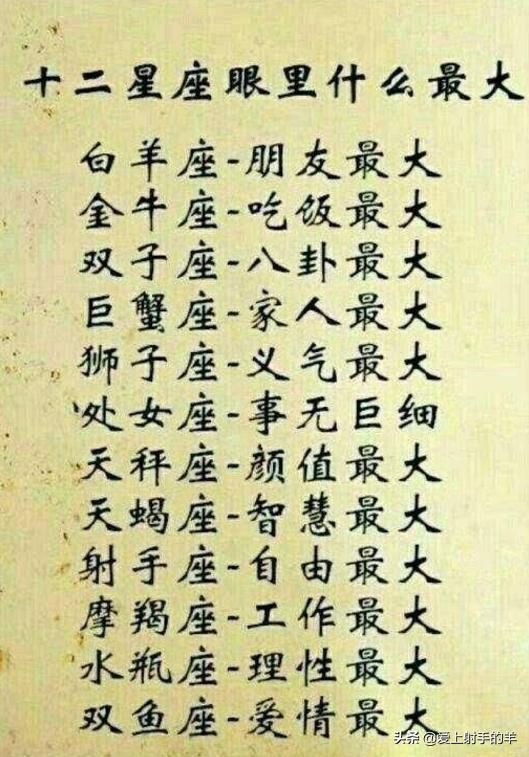 十二星座眼里什么最大
白羊座-朋友最大
金牛座-吃饭最大
双子座-八卦最大
巨蟹座-家人最大
狮子座-义气最大
处女座-事无巨细
天秤座-颜值最大
天蝎座-智慧最大
射手座-自由最大
摩羯座-工作最大
水瓶座-理性最大
双鱼座-爱情最大
头条 @爱上射手的羊